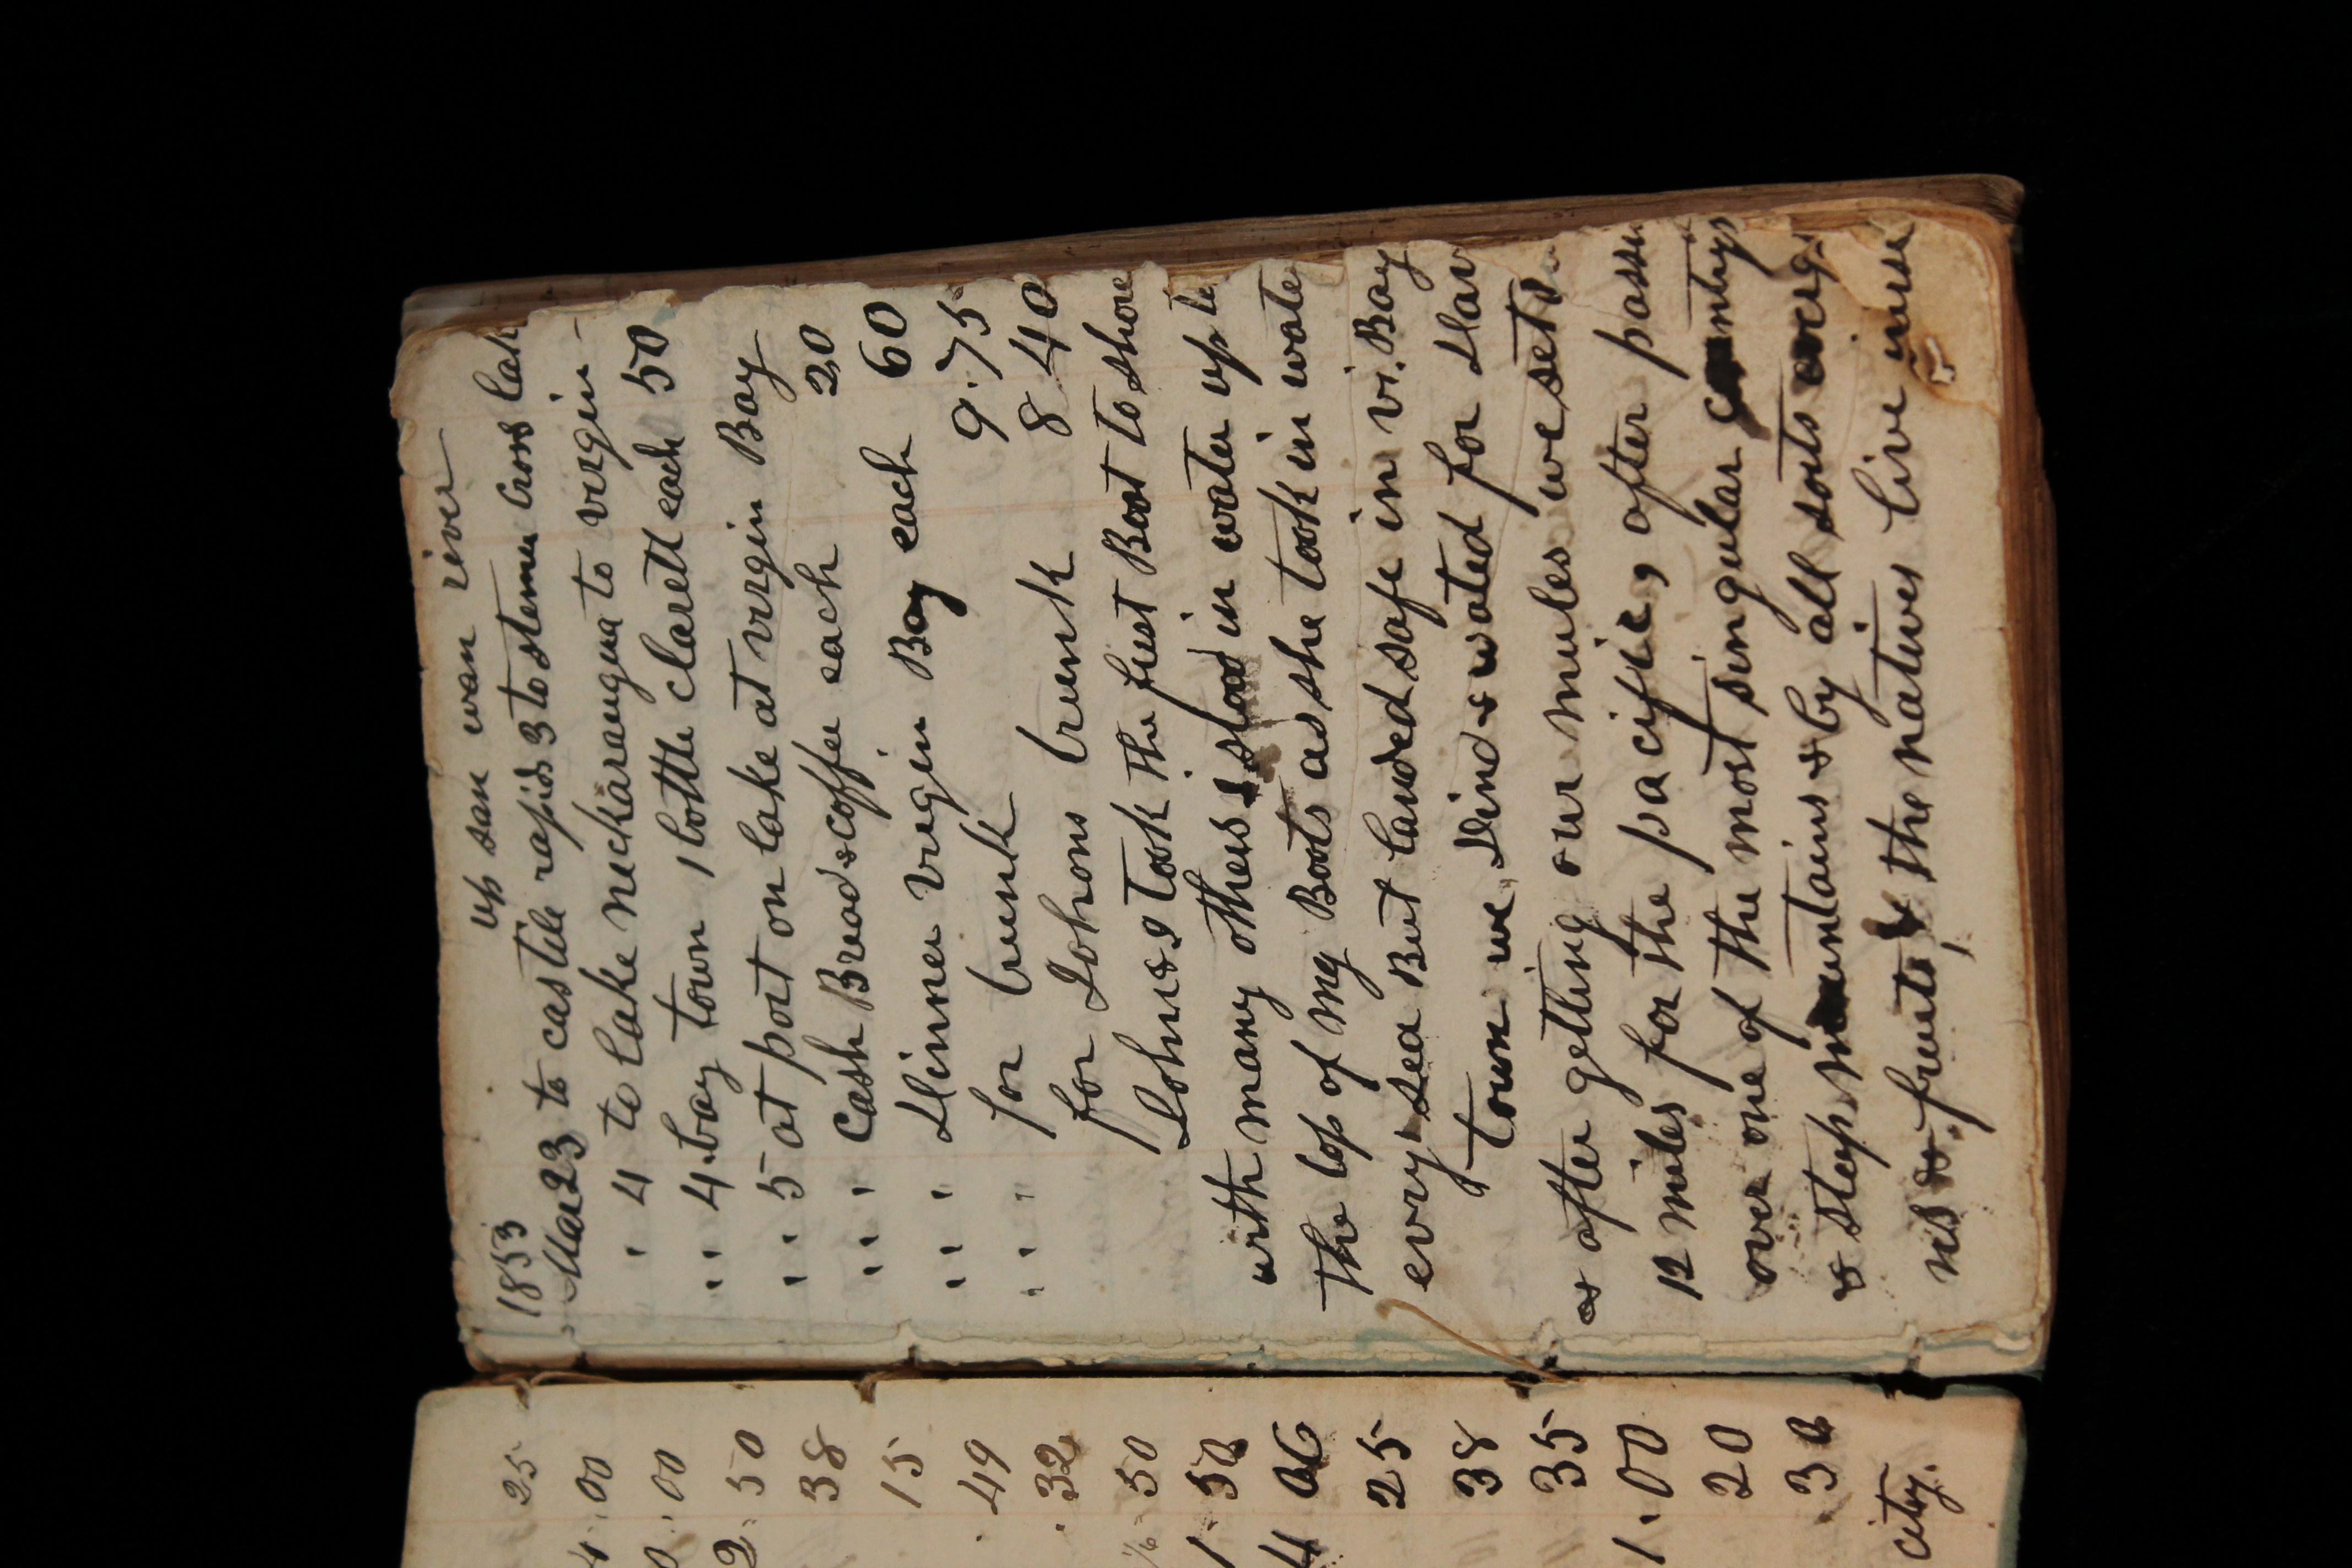 25
4. 00
0. 00
2. 50
38
15
49
32
50
1 50
4 06
25
38
35
1. 00
20
30
city.
up san wan river
1853
Mar 23 to castile rapids 3 to stemer Cross lak
" 4 to lake neckaraugua to virgin -
" " 4. bay town 1 bottle clarett each 50
" " 5 at port on lake at virgin Bay
" " " Cash Bread & coffee each 20
" " " Dinner virgin Bay each 60
" " " for trunk 9.75
for Johons trunk 8 40
John & I took the first Boat to shore
with many others i stood in water up to
the top of my Boots as she took in wate
evry sea But landed safe in vi. Bay
town we Dind & wated for Dav
& after getting our mules we set o
12 miles for the pacific, after passi
over one of the most singular countrys
& steep mountains & by all sorts everg
ns & fruits, & the natives live